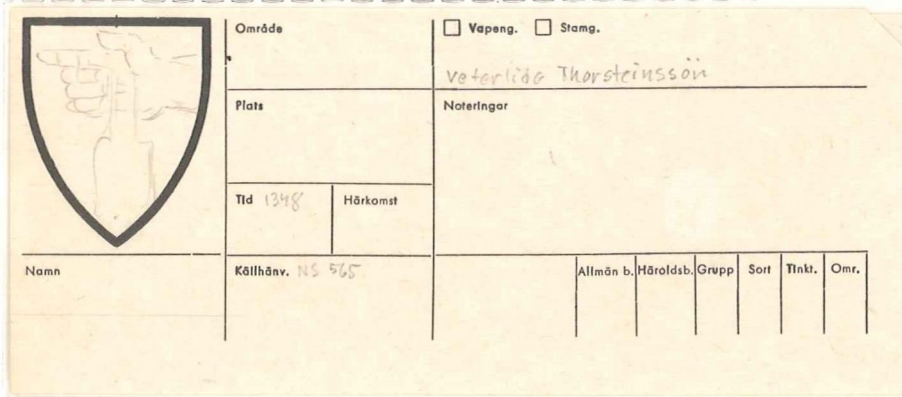 Område
Vapeng. Stamg.
Veterlide Thorsteinssön
Plats
Noteringar
Tid 1348
Härkomst
Namn
Källhänv. NS 565
Allmän b. Häroldsb. Grupp Sort Tinkt. Omr.